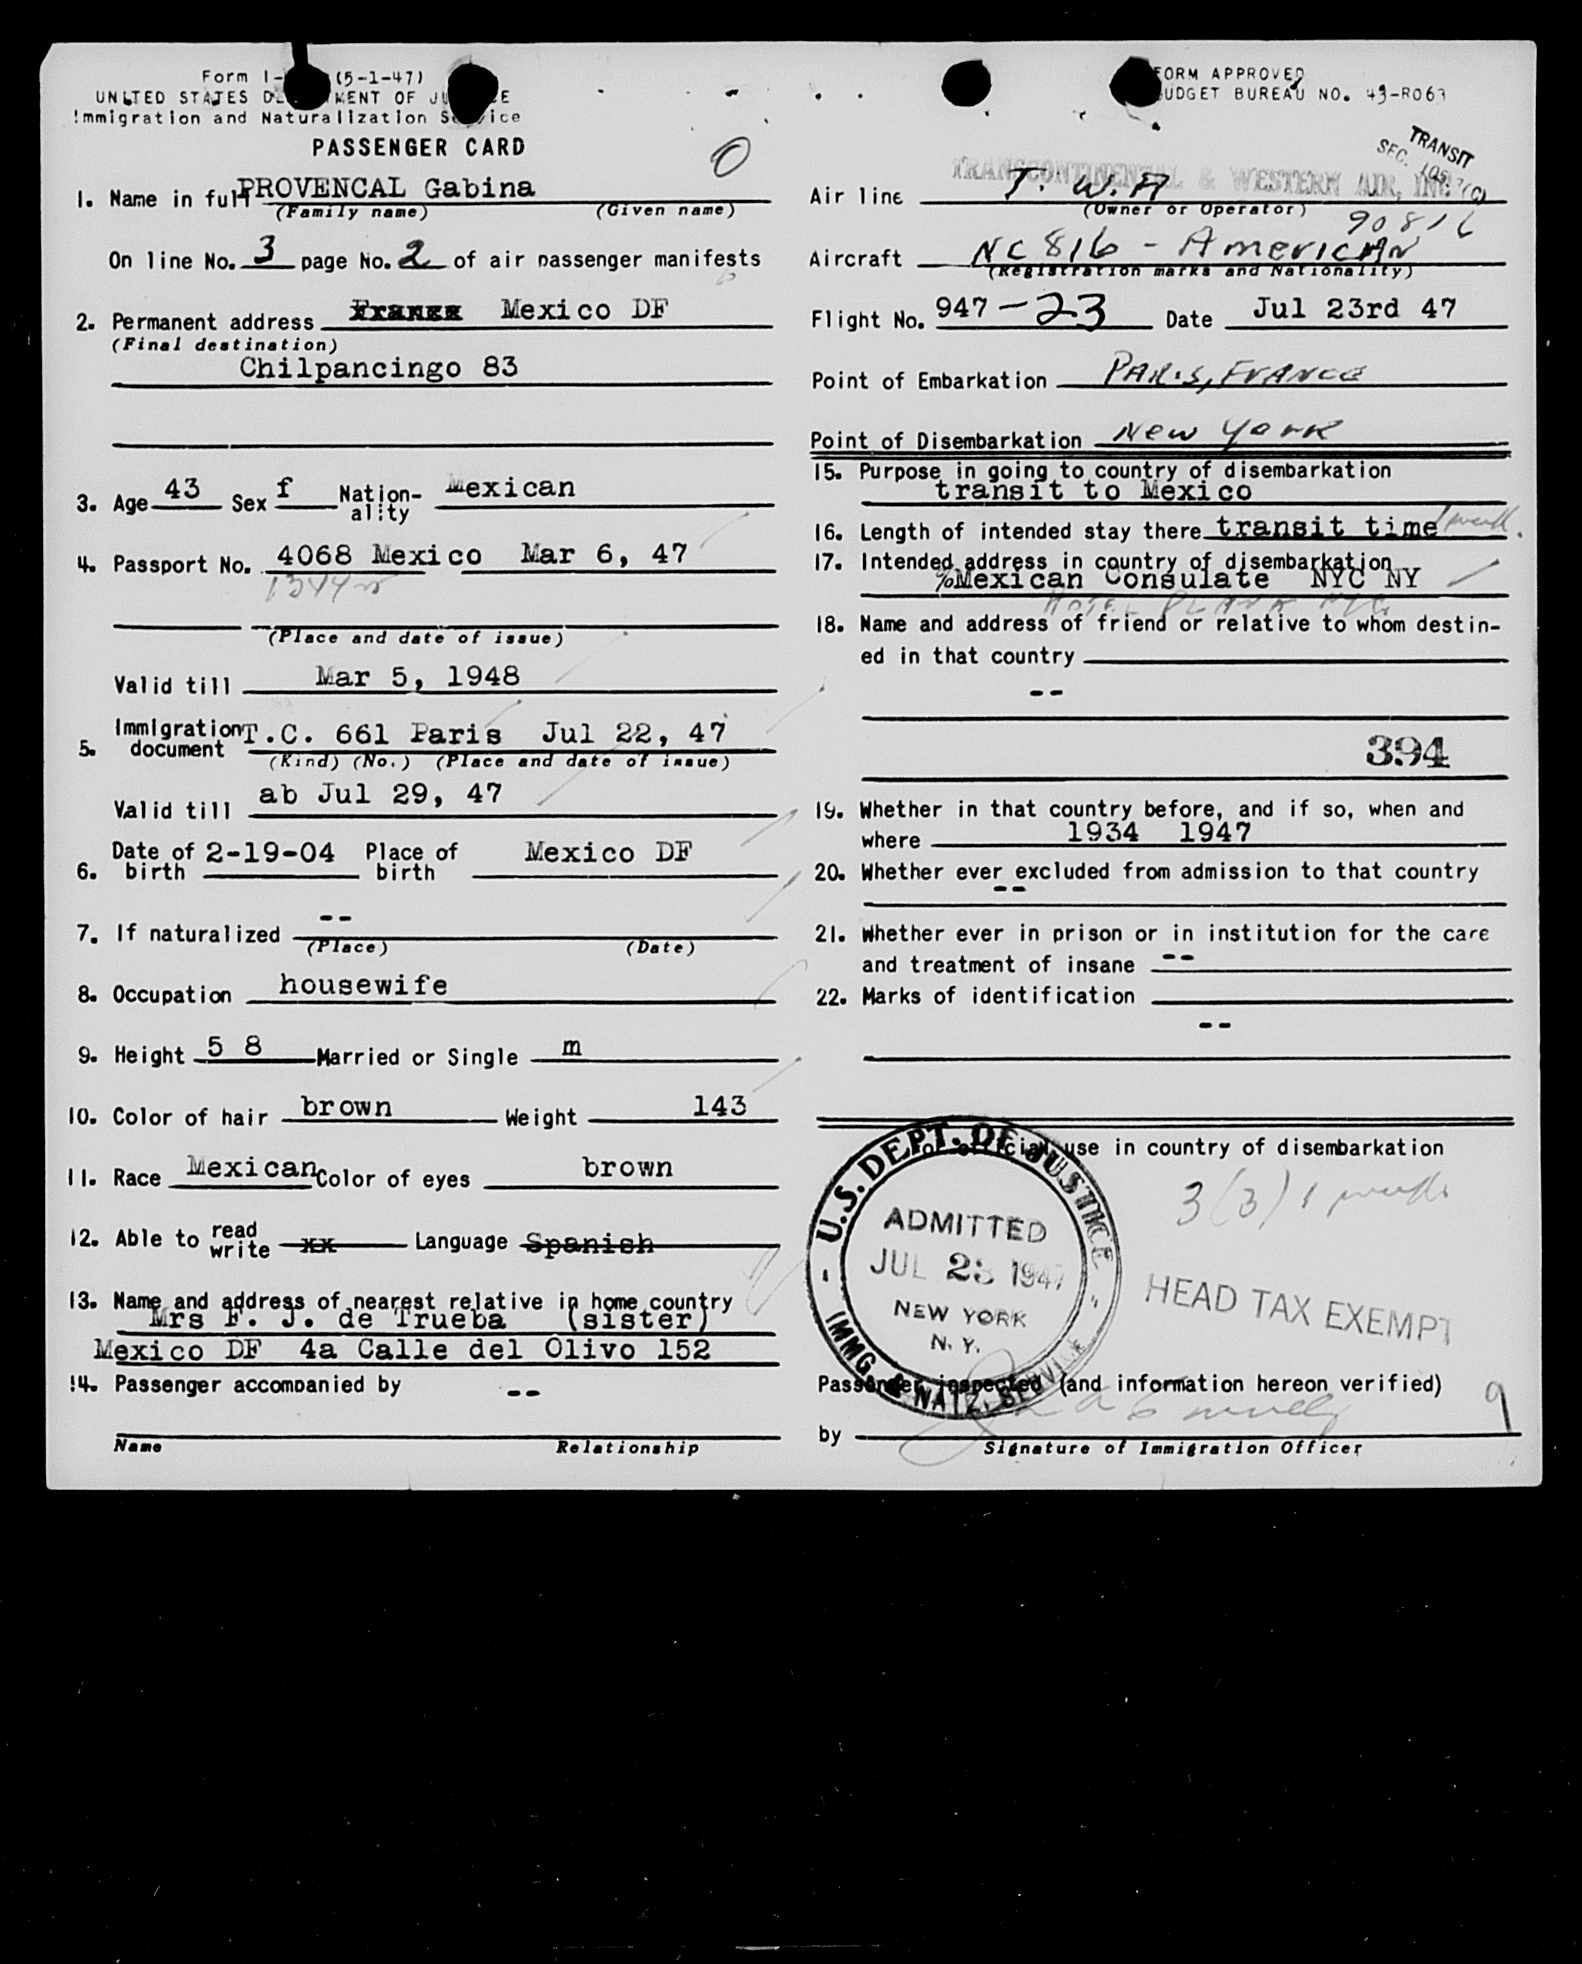 Form I- (5-1-47)
UNITED STATES DEPARTMENT OF JUSTICE
Immigration and Naturalization Service
PASSENGER CARD
0
FORM APPROVED
BUDGET BUREAU NO. 43-R063
TRANSIT
SEC.
1. Name in full PROVENCAL Gabina
(Family name) (Given name)
On line No. 3 page No. 2 of air passenger manifests
2. Permanent address Mexico DF
(Final destination)
Chilpancingo 83
3. Age 43 Sex f Nation-ality Mexican
4. Passport No. 4068 Mexico Mar 6, 47
(Place and date of issue)
Valid till Mar 5, 1948
5. Immigration document T.C. 661 Paris Jul 22, 47
(Kind) (No.) (Place and date of issue)
Valid till ab Jul 29, 47
6. Date of birth 2-19-04 Place of birth Mexico DF
7. If naturalized --
(Place) (Date)
8. Occupation housewife
9. Height 5 8 Married or Single m
10. Color of hair brown Weight 143
11. Race Mexican Color of eyes brown
12. Able to read write xx Language Spanish
13. Name and address of nearest relative in home country
Mrs F. J. de Trueba (sister)
Mexico DF 4a Calle del Olivo 152
14. Passenger accompanied by --
Name Relationship
TRANSCONTINENTAL & WESTERN AIR, INC.
Air line T.W.A
(Owner or Operator)
90816
Aircraft NC 816 - American
(Registration marks and Nationality)
Flight No. 947-23 Date Jul 23rd 47
Point of Embarkation Paris, France
Point of Disembarkation New York
15. Purpose in going to country of disembarkation
transit to Mexico
16. Length of intended stay there transit time 1 week.
17. Intended address in country of disembarkation
%Mexican Consulate NYC NY
18. Name and address of friend or relative to whom destin-
ed in that country
--
394
19. Whether in that country before, and if so, when and
where 1934 1947
20. Whether ever excluded from admission to that country
--
21. Whether ever in prison or in institution for the care
and treatment of insane --
22. Marks of identification
--
For official use in country of disembarkation
3(3) 1 week
U.S. DEPT. OF JUSTICE
ADMITTED
JUL 23 1947
NEW YORK
N.Y.
IMMG & NATZ. SERVICE
HEAD TAX EXEMPT
Passenger inspected (and information hereon verified)
9
by
Signature of Immigration Officer